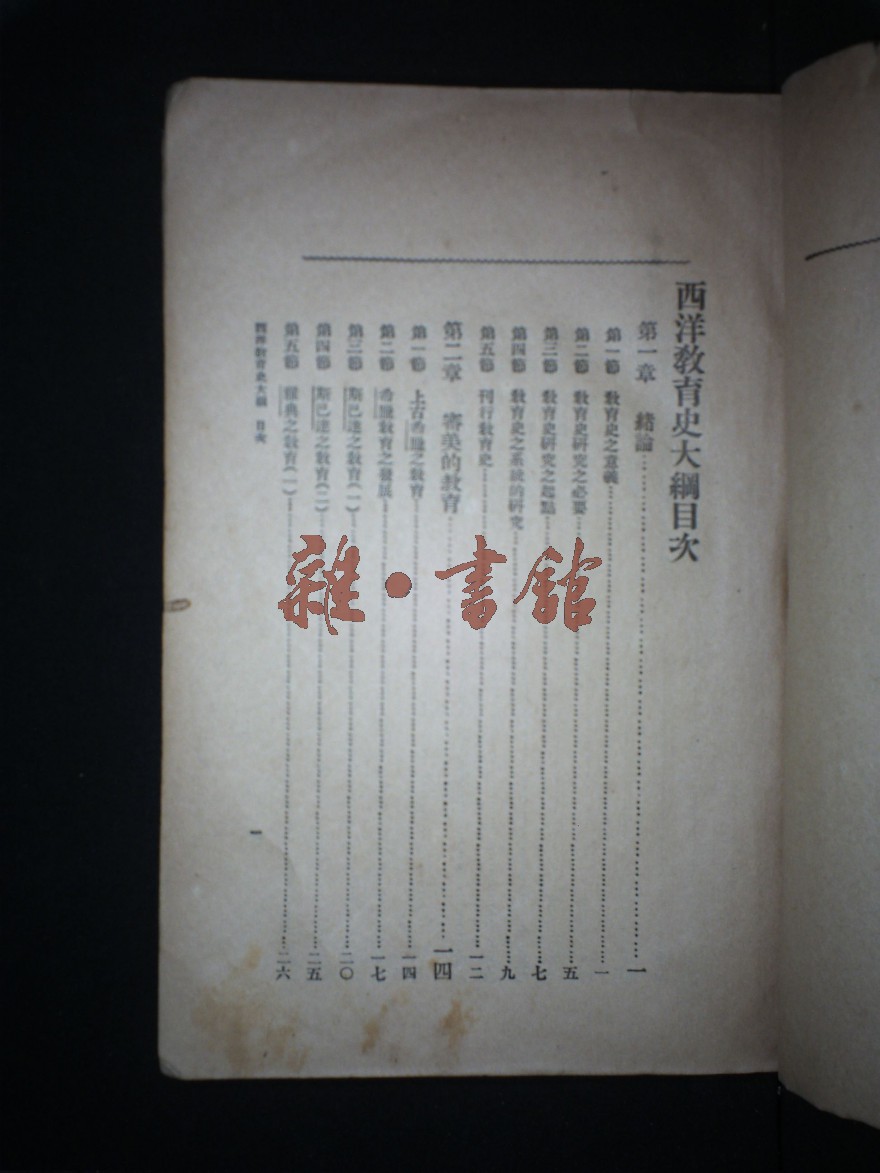 西洋敎育史大綱目次
第一章 緖論 一
第一節 敎育史之意義 一
第二節 敎育史硏究之必要 五
第三節 敎育史硏究之起點 七
第四節 敎育史之系統的硏究 九
第五節 刊行敎育史 一二
第二章 審美的敎育 一四
第一節 上古希臘之敎育 一四
第二節 希臘敎育之發展 一七
第三節 斯巴達之敎育(一) 二〇
第四節 斯巴達之敎育(二) 二五
第五節 雅典之敎育(一) 二六
西洋敎育史大綱 目次 一
雜·書館